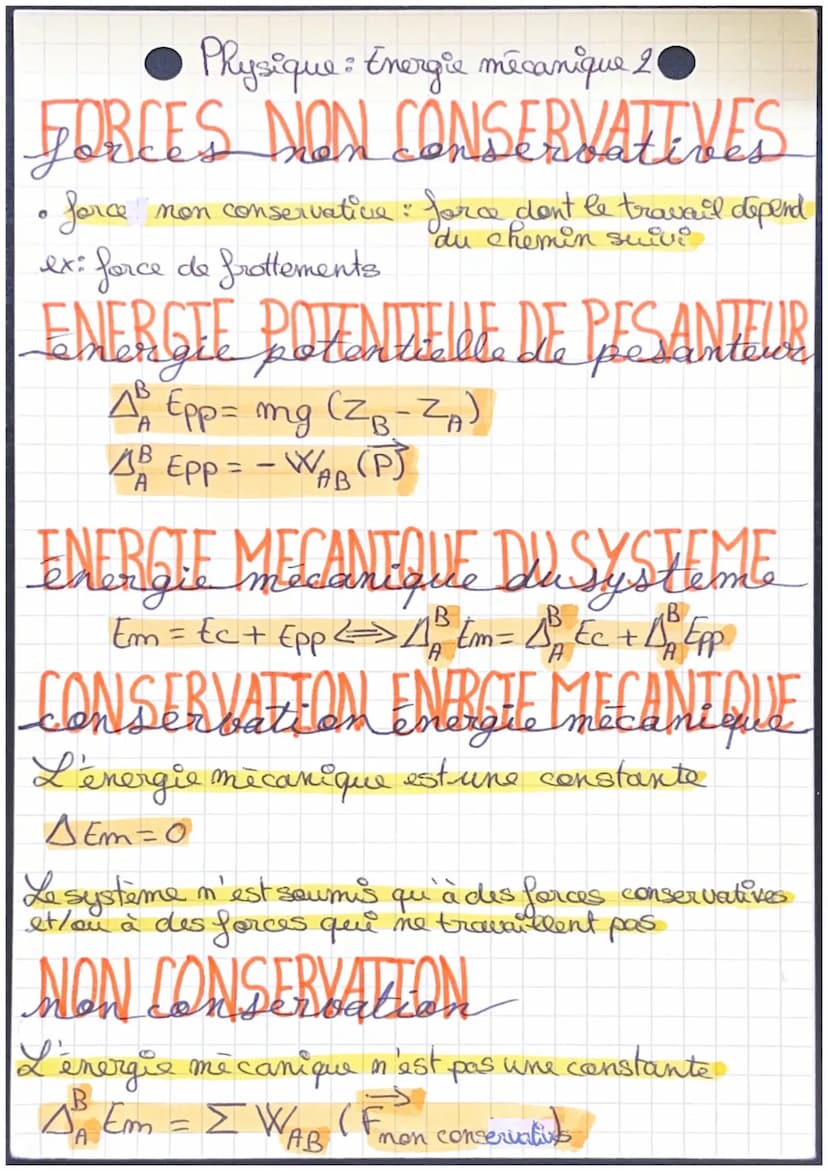 Physique : Energie mécanique 2
FORCES NON CONSERVATIVES
forces non conservatives
• force non conservative : force dont le travail dépend
du chemin suivi
ex : force de frottements
ENERGIE POTENTIELLE DE PESANTEUR
énergie potentielle de pesanteur
Δ_A^B Epp = mg (Z_B - Z_A)
Δ_A^B Epp = - W_AB (P⃗)
ENERGIE MECANIQUE DU SYSTEME
énergie mécanique du systeme
Em = Ec + Epp ⟺ Δ_A^B Em = Δ_A^B Ec + Δ_A^B Epp
CONSERVATION ENERGIE MECANIQUE
conservation énergie mécanique
L'énergie mécanique est une constante
Δ Em = 0
Le système n'est soumis qu'à des forces conservatives
et/ou à des forces qui ne travaillent pas
NON CONSERVATION
non conservation
L'énergie mécanique n'est pas une constante
Δ_A^B Em = Σ W_AB (F⃗ non conservatives)